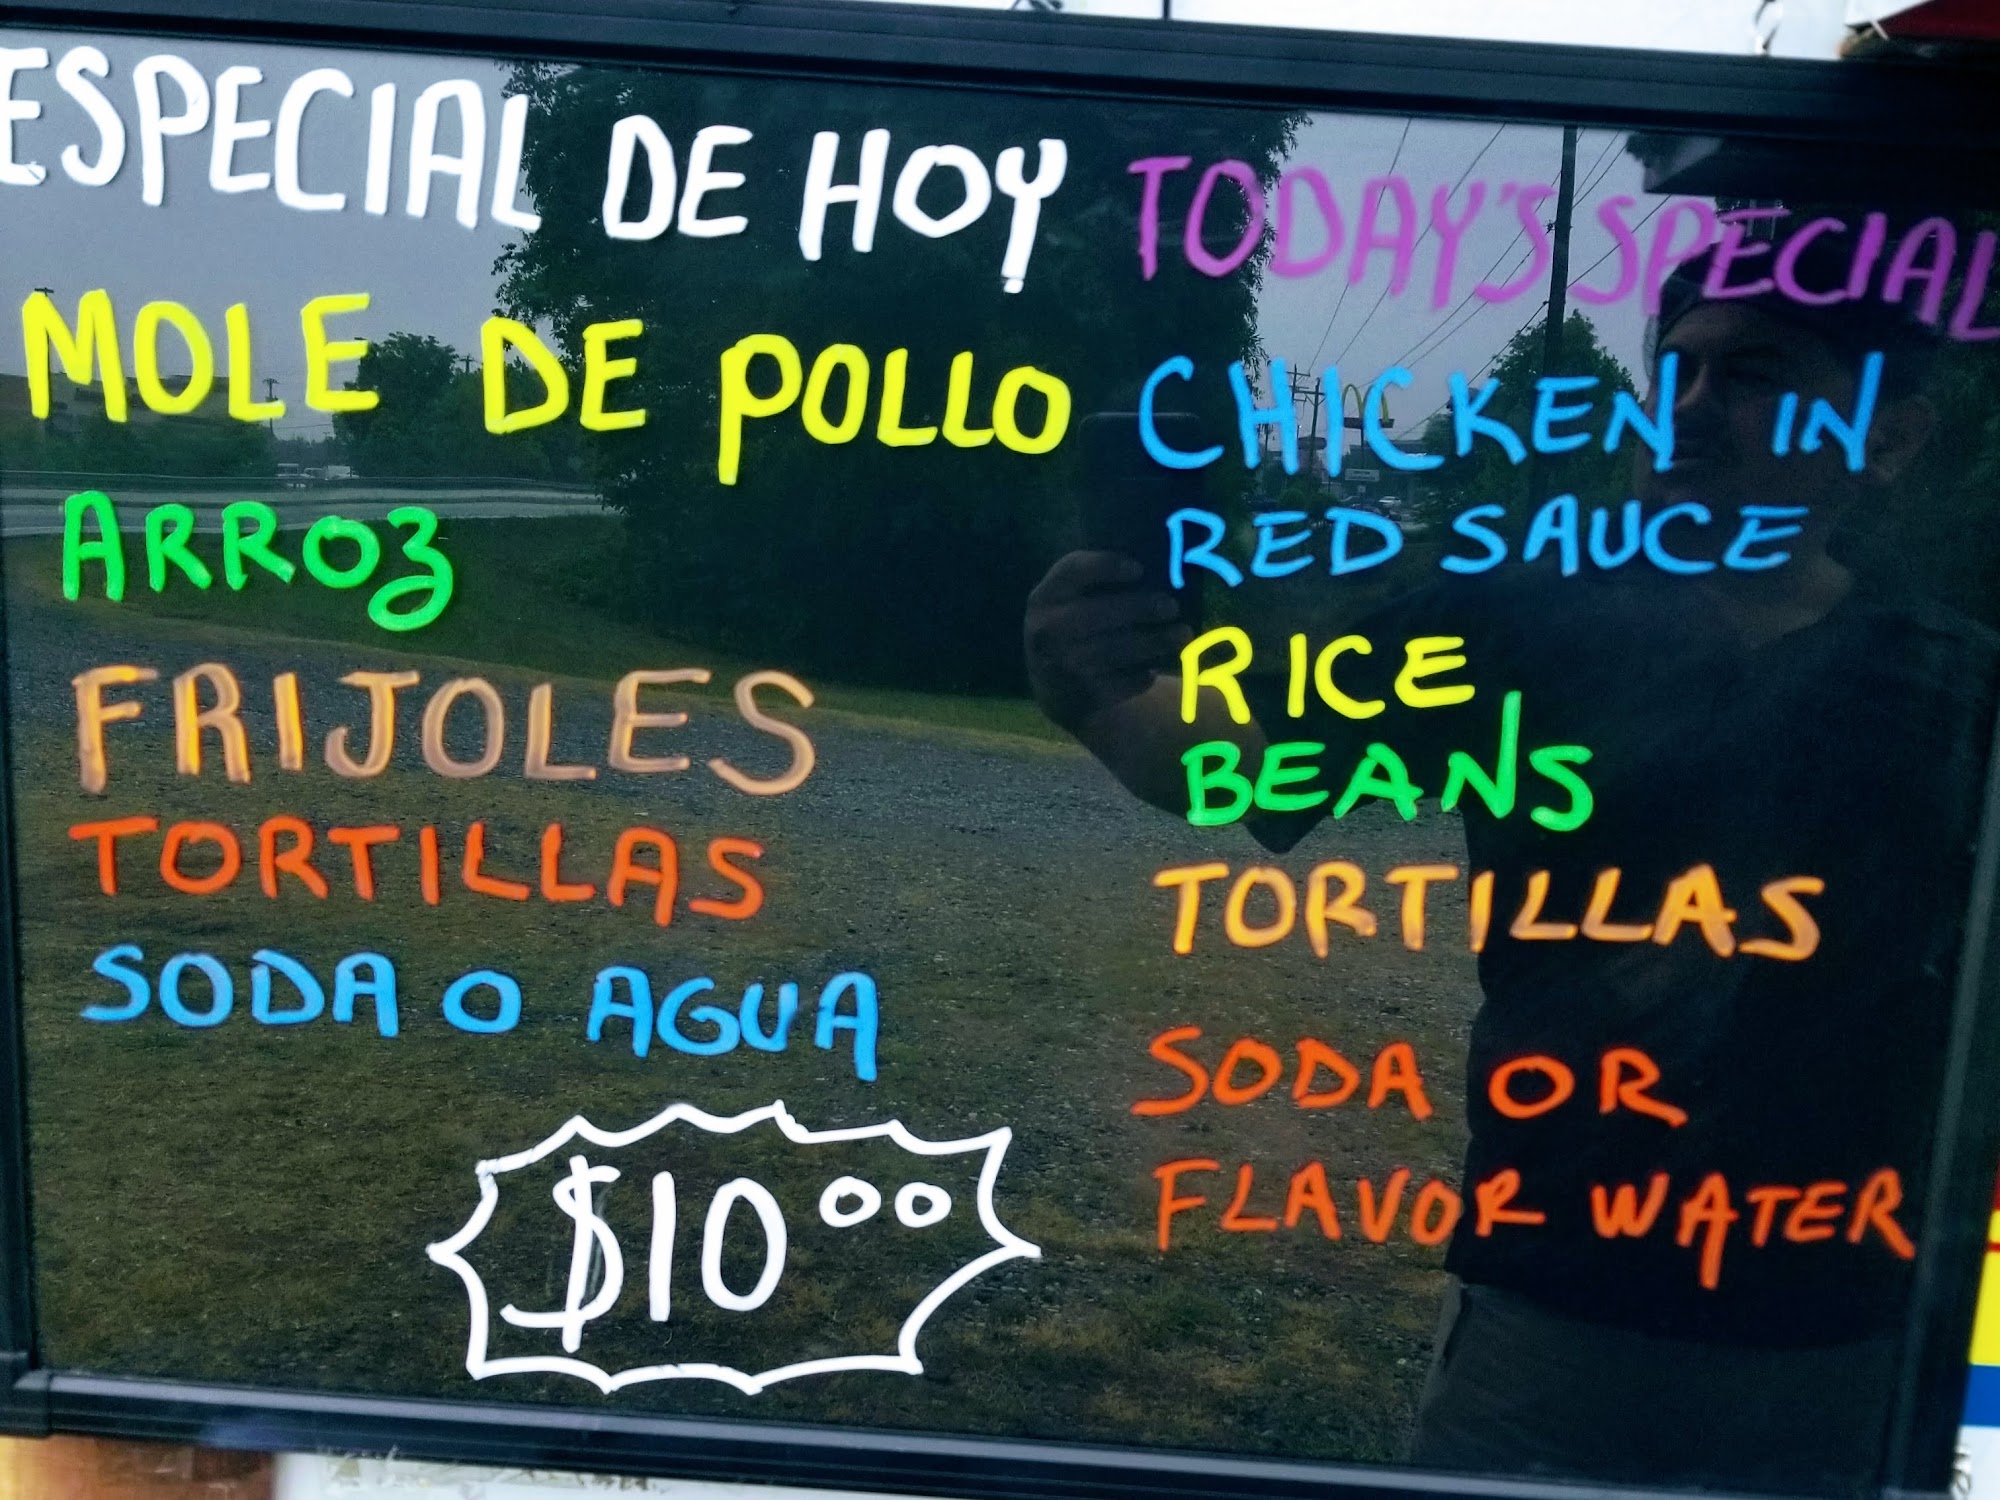 ESPECIAL DE HOY
MOLE DE POLLO
ARROZ
FRIJOLES
TORTILLAS
SODA O AGUA
$10.00
TODAY'S SPECIAL
CHICKEN IN
RED SAUCE
RICE,
BEANS
TORTILLAS
SODA OR
FLAVOR WATER